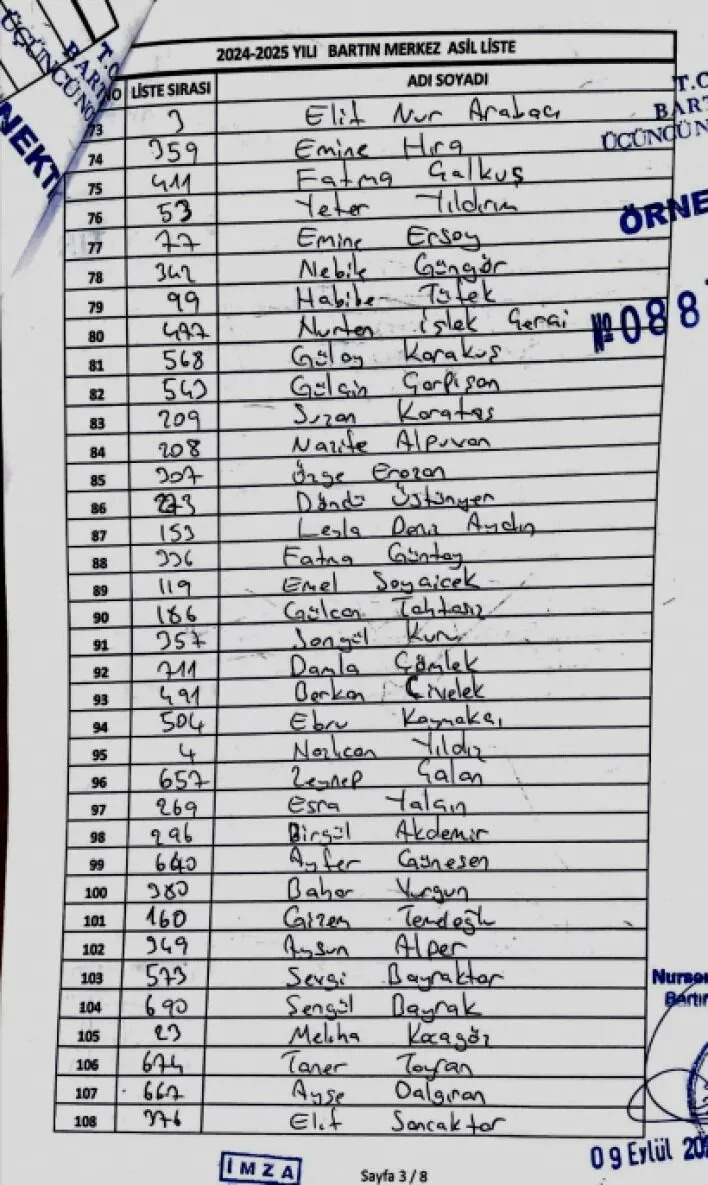 T.C
BARTIN
ÜÇÜNCÜ NO
NEKTİ
2024-2025 YILI BARTIN MERKEZ ASİL LİSTE
NO LİSTE SIRASI ADI SOYADI
T.C
BART
ÜÇÜNCÜ N
ÖRNE
№ 088
73 3 Elif Nur Arabacı
74 359 Emine Hıra
75 411 Fatma Çalkuş
76 53 Yeter Yıldırım
77 77 Emine Ersoy
78 342 Nebile Güngör
79 99 Habibe Tüfek
80 477 Nurten İşlek Gerai
81 568 Gülay Karakuş
82 543 Gülçin
83 209 Suzan Karataş
84 208 Nazife Alpuvan
85 307 Özge Erozan
86 273 Döndü Üstünyer
87 153 Leyla Deniz Aydın
88 336 Fatma Güntay
89 119 Emel Soyaicek
90 186 Gülcan Tahtasız
91 357 Songül Kuru
92 711 Damla Çömlek
93 491 Berkan Civelek
94 504 Ebru Kaynakcı
95 4 Nazlıcan Yıldız
96 657 Zeynep Çalan
97 269 Esra Yalçın
98 296 Birgül Akdemir
99 640 Ayfer Güneşen
100 380 Bahar Vurgun
101 160 Gizem
102 349 Aysun Alper
103 573 Sevgi Bayraktar
104 690 Şengül Bayrak
105 23 Meliha Kocagöz
106 674 Taner Toyran
107 667 Ayşe Dalgıran
108 376 Elif Sancaktar
Nurse
Bartın
09 Eylül 20
İMZA
Sayfa 3 / 8